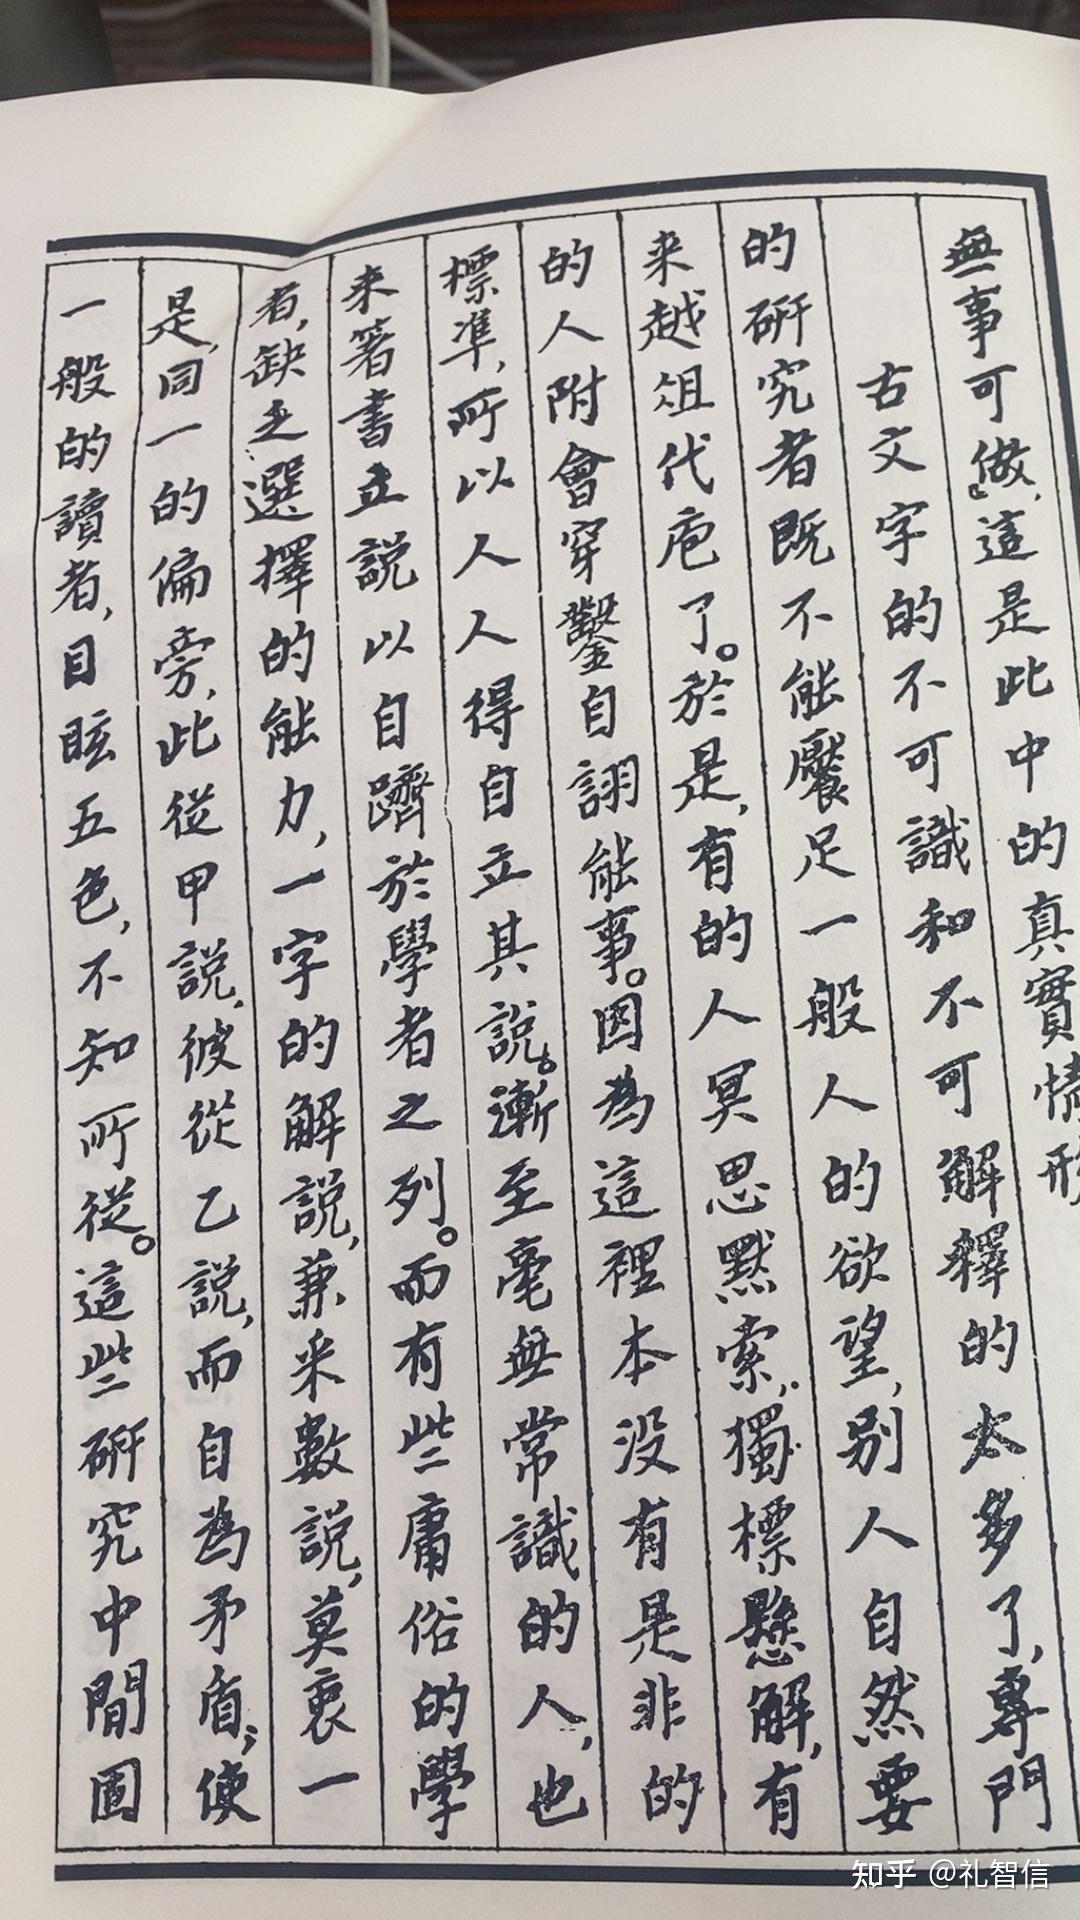 無事可做』，這是此中的真實情形
古文字的不可識和不可解釋的太多了，專門
的研究者既不能饜足一般人的欲望，別人自然要
来越俎代庖了。於是，有的人冥思默索，獨標懸解，有
的人附會穿鑿自詡能事。因為這裡本没有是非的
標準，所以人人得自立其説。漸至毫無常識的人，也
来著書立説以自躋於學者之列。而有些庸俗的學
者，缺乏選擇的能力，一字的解説，兼采數説，莫衷一
是，同一的偏旁，此從甲説，彼從乙説，而自為矛盾；使
一般的讀者，目眩五色，不知所從。這些研究中間固
知乎 @礼智信